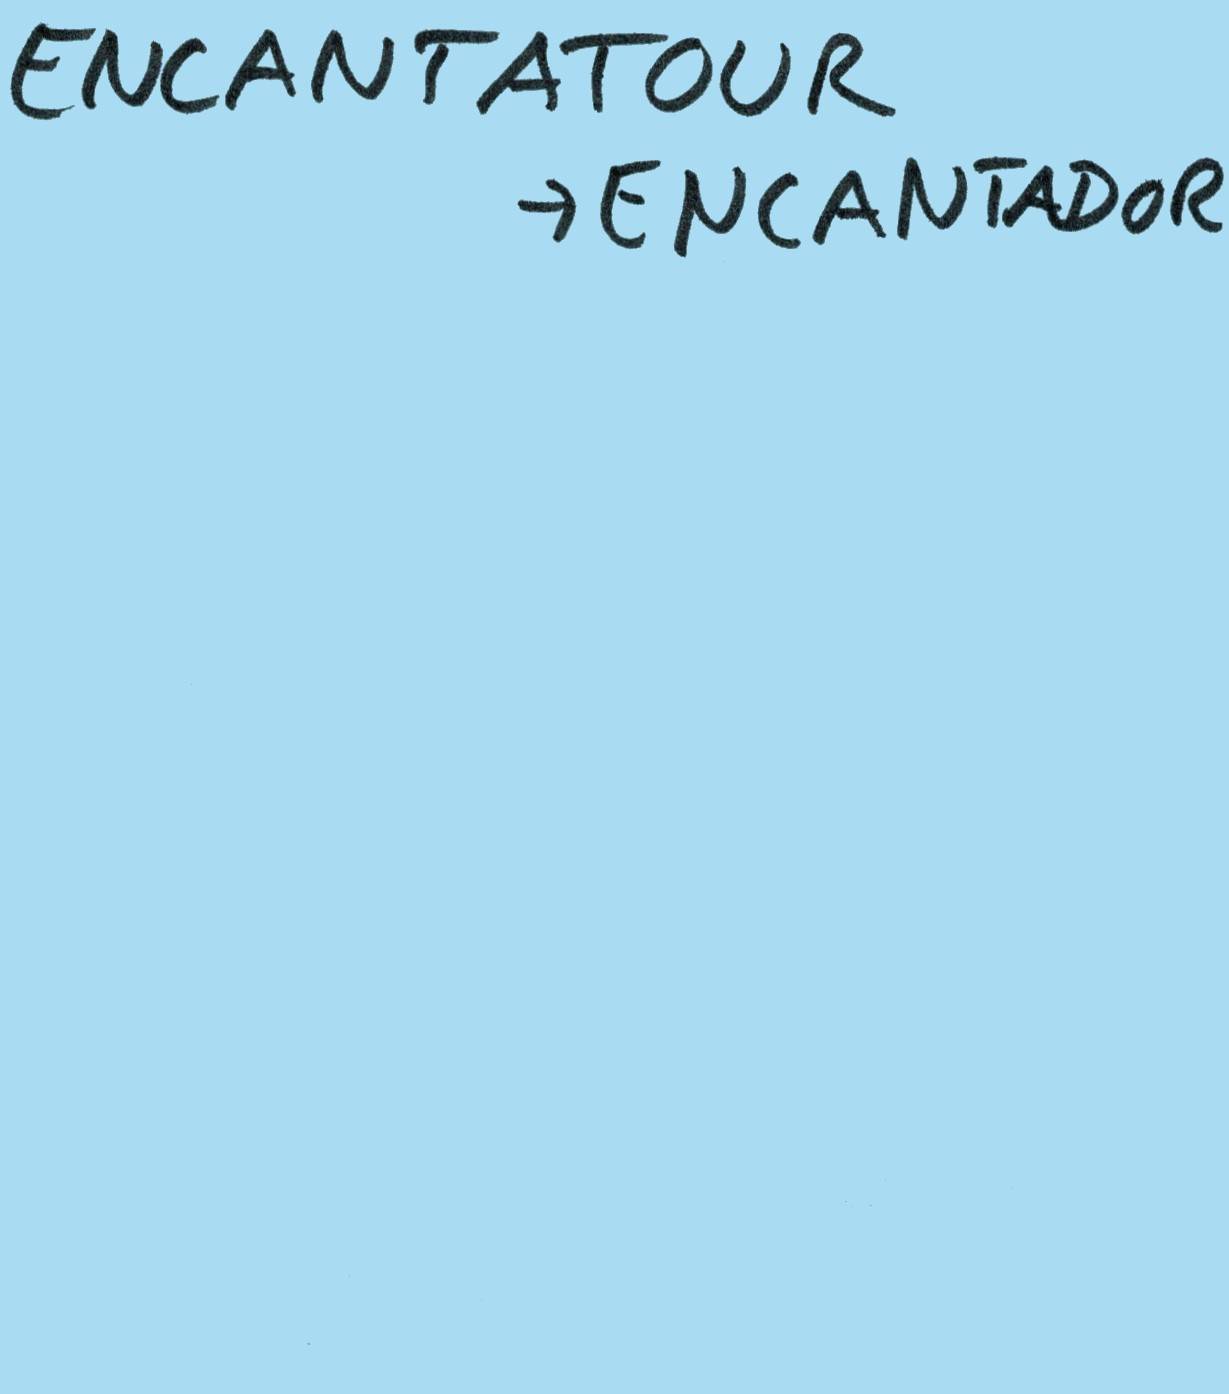 ENCANTATOUR
→ ENCANTADOR